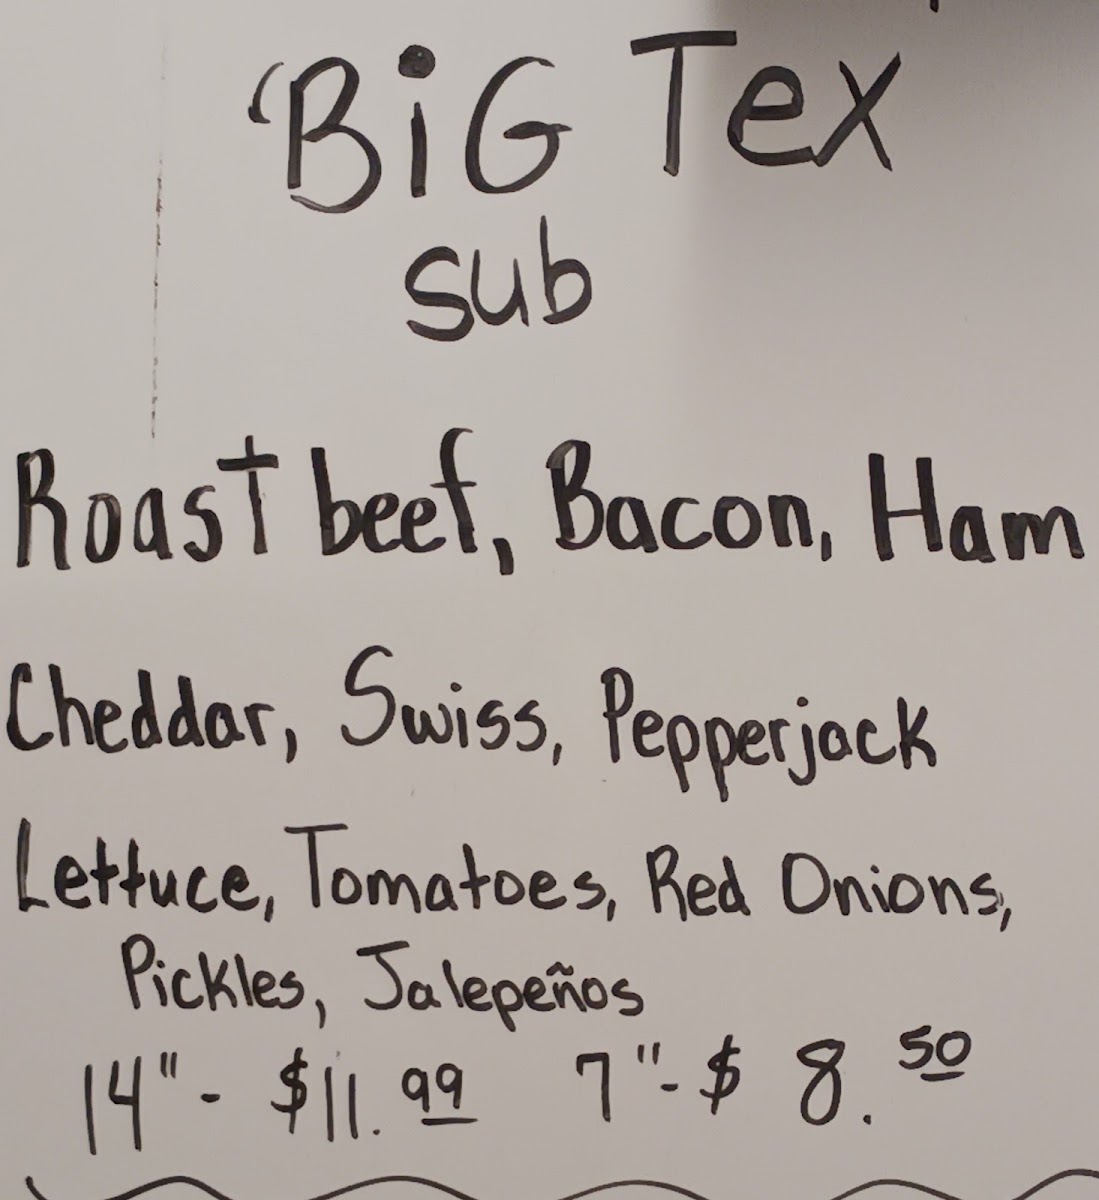 'BiG Tex
sub
Roast beef, Bacon, Ham
Cheddar, Swiss, Pepperjack
Lettuce, Tomatoes, Red Onions,
Pickles, Jalepeños
14" - $11.99 7" - $ 8.50